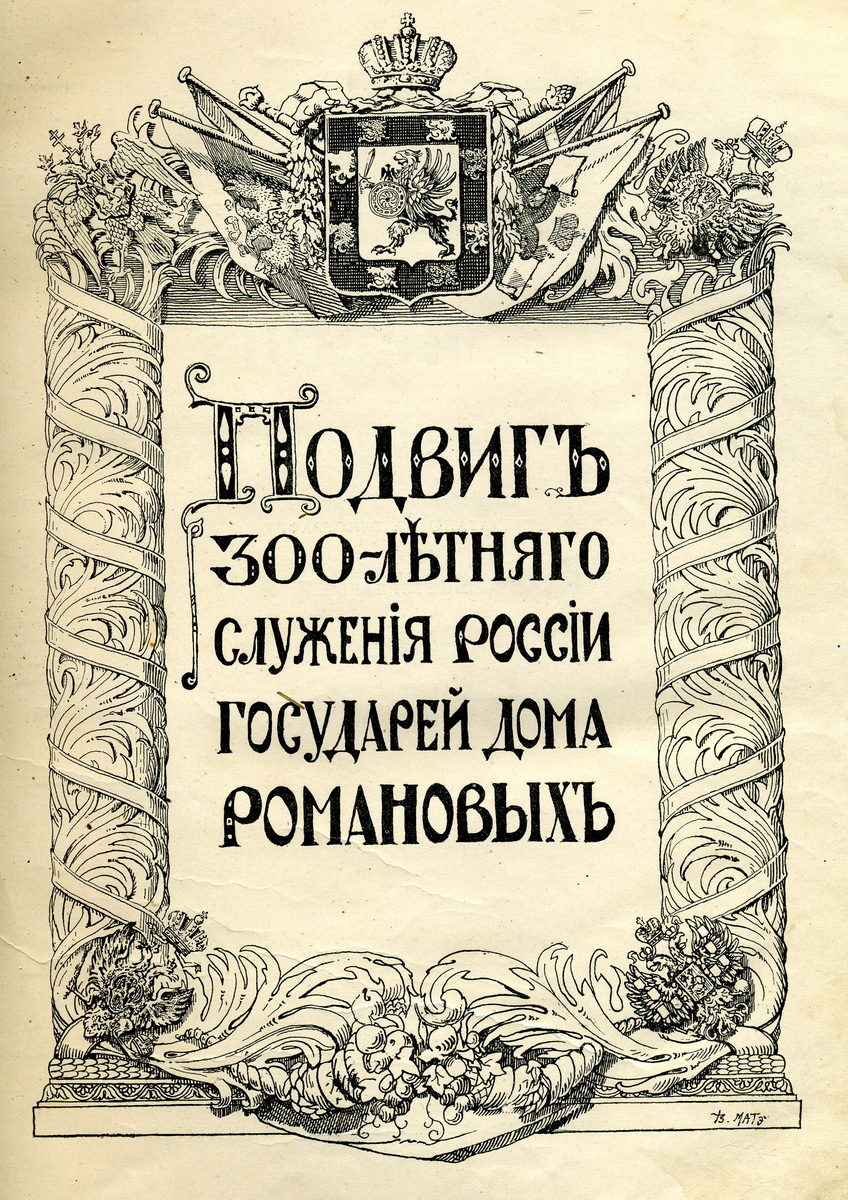 Подвигъ
300-лѣтняго
служенія Россіи
Государей Дома
Романовыхъ
В. МАТЭ